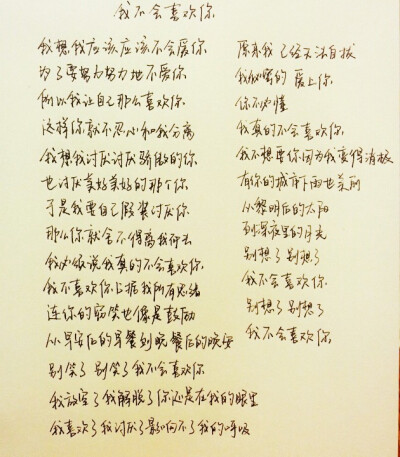 我不会喜欢你
我想我应该应该不会爱你
为了要努力努力地不爱你
所以我让自己那么喜欢你
这样你就不忍心和我分离
我想我讨厌讨厌骄傲的你
也讨厌美好美好的那个你
于是我要自己假装讨厌你
那么你就舍不得离我而去
我必须说我真的不会喜欢你
我不喜欢你占据我所有思绪
连你的窃笑也像是鼓励
从早安后的早餐到晚餐后的晚安
别笑了 别笑了我不会喜欢你
我放空了我解脱了你还是在我的眼里
我喜欢了我讨厌了影响不了我的呼吸
原来我已经无法自拔
我秘密的 爱上你
你不必懂
我真的不会喜欢你
我不想要你因为我变得消极
有你的城市下雨也美丽
从黎明后的太阳
到深夜里的月光
别想了 别想了
我不会喜欢你
别想了 别想了
我不会喜欢你